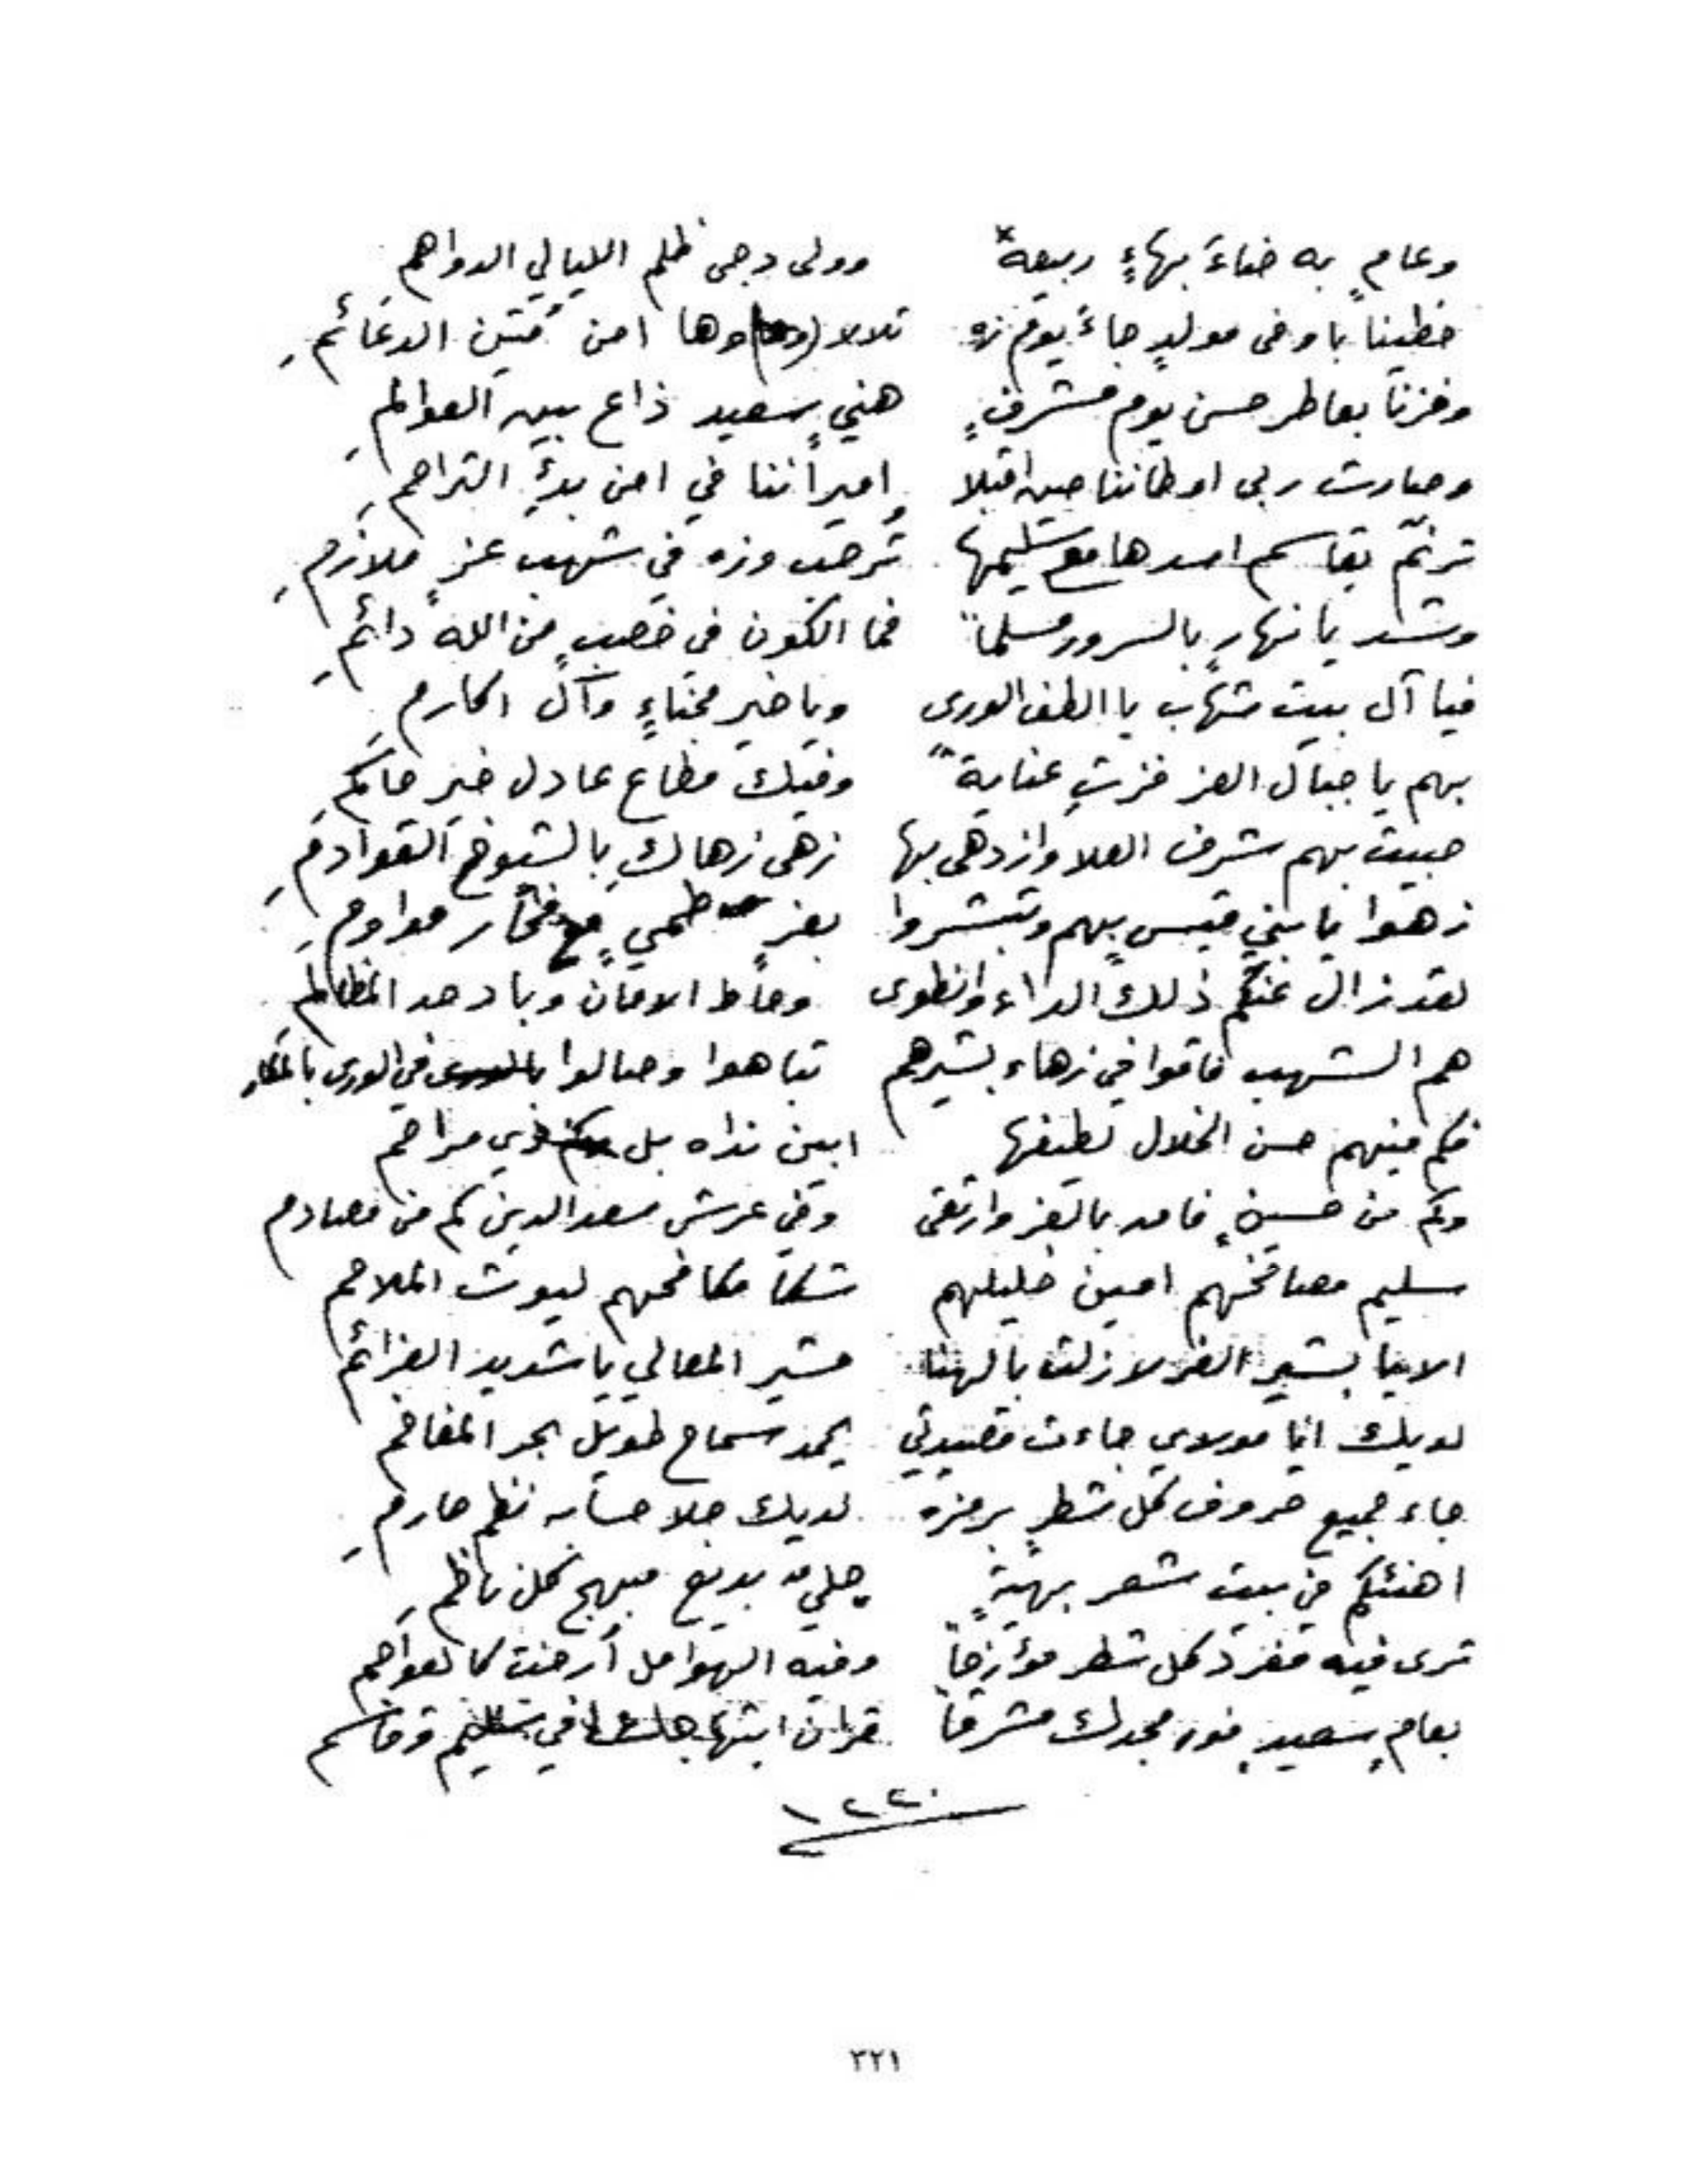 وعامٍ به ضاءَ بهاءٍ ربيعه وولى دجى ظلم الليالي الدواهم
خطينا باوفى مولدٍ جاءَ يوم زه تلالا وها امن متين الدعائمِ
وفزنا بعاطر حسن يوم مشرفٍ هنيٍ سعيد ذاع بين العوالمِ
وصارت ربى اوطاننا حين اقبلا اميراننا في امن بدئ التراحمِ
ترنّم بقاسم اسدها مع سليمها ترحب وزه في شهب عزٍ ملازمِ
وشد يا نهارٍ بالسرور مسلماً فما الكون في خصبٍ من الله دائمِ
فيا آل بيت شهاب يا الطف الورى ويا خير وآل اكارمِ
بهم يا جبال العز فزتِ عناية وفيك مطاع عادل خير حاكمِ
حبيت بهم شرف العلا وازدهى بها زهى زهاكِ بالشيوخ القوادمِ
زهوا يا بني قيسٍ بهم وتبشروا بعزٍ مع فخار مداومِ
لقد زال عنكم ذلك الداء وانطوى وحاط الامان وباد حد المظالم
هم الشهب فاقوا في زهاء بشيرهم تباهوا وصالوا في الورى
فكم منهم حسن الخلال لطيفها ابين نداه بل ذوي مراحم
وكم من حسينٍ فامد بالعز وارتقى وفي عرش سعد الدين كم من مصادم
سليم مصافحهم امين خليلهم مكافحهم ليوث الملاحم
الا يا بشير العز لا زلت بالهنا مشير المعالي يا شديد العزائم
لديك ايا مولاي جاءت قصيدتي بحمد سماح طويل بحر المفاخم
جاء جميع حروف كل شطرٍ برمزه لديك جلا حسابه نظم صارمِ
اهنئكم في بيت شعر بهيةٍ بديع مبهج كل ناظمِ
ترى فيه مفرد كل شطر مؤارخاً وفيه الهوامل أرخت كالعواجم
بعامٍ سعيدٍ نور مجدك مشرقاً قران ابتها في سليم وقاسم
١٢٢٠
٣٢١